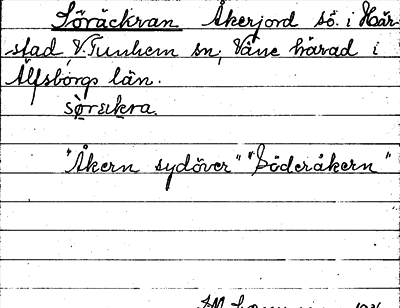 Söråckran Åkerjord sö. i Hår-
stad, V. Tunhem sn, Väne härad i
Älfsborgs län.
"Åkern sydöver" "Söderåkern"